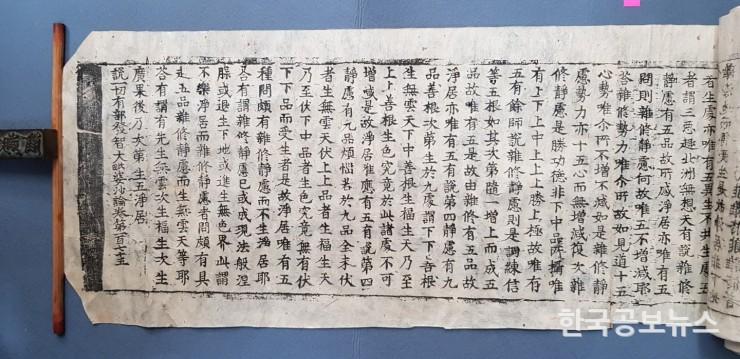 若生處亦唯有五異生不共生處五
者謂三惡趣北洲無想天有說雜修
靜慮有五品故所感淨居亦唯有五
問則雜修靜慮何故唯五不增減耶
荅雜修勢力唯尒所故如見道十五
心勢唯尒所不增不減如是雜修靜
慮勢力亦十五心而無增減復次雜
修靜慮是勝功德非下中品所攝唯
有上下上中上上上勝上極故唯有
五有餘師說雜修靜慮則是調練信
善五根如其次第隨一增上而成五
品故唯有五是故由雜修有五品故
淨居亦唯有五有說第四靜慮有九
品善根次第生於九處謂下下善根
生無雲天下中善根生福生天乃至
上上善根生色究竟於此諸處不可
增減是故淨居唯應有五有說第四
靜慮有九品煩惱若於九品全未伏
者生無雲天伏上上品者生福生天
乃至伏下中品者生色究竟無有伏
下下品而受生者是故淨居唯有五
種問頗有雜修靜慮而不生淨居耶
荅有謂雜修靜慮已或成現法般涅
槃或退生下地或進生無色界此謂
不樂淨居而雜修靜慮者問頗有具
足五品雜修靜慮而生無雲天等耶
荅有謂有先生無雲次生福生次生
廣果後乃次第生五淨居
說一切有部發智大毗婆沙論卷第百七十五
한국공보뉴스